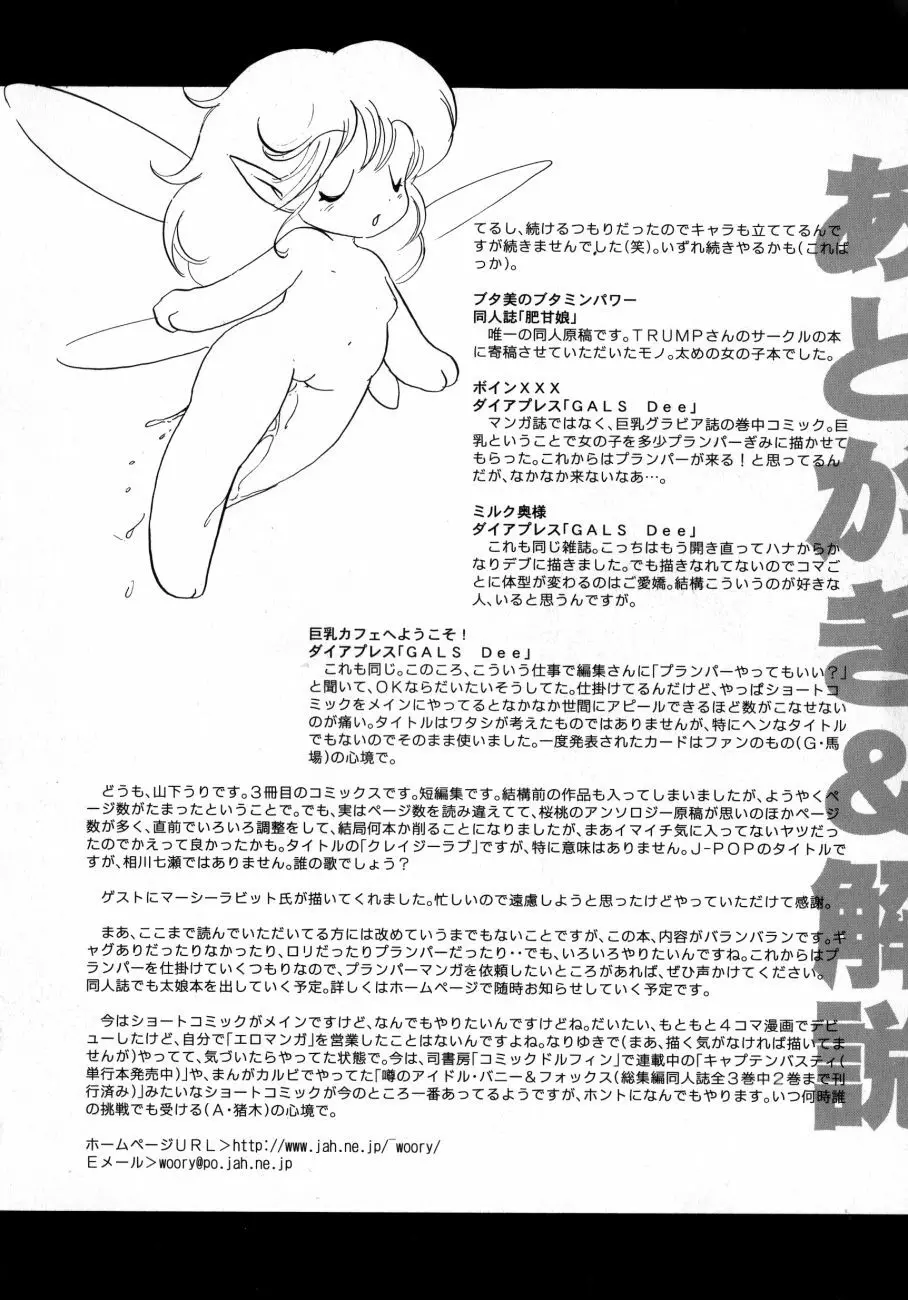 あとがき&解説
てるし、続けるつもりだったのでキャラも立ててるんで
すが続きませんでした(笑)。いずれ続きやるかも(こればっか)。
ブタ美のブタミンパワー
同人誌「肥甘娘」
唯一の同人原稿です。TRUMPさんのサークルの本
に寄稿させていただいたモノ。太めの女の子本でした。
ボインXXX
ダイアプレス「GALS Dee」
マンガ誌ではなく、巨乳グラビア誌の巻中コミック。巨
乳ということで女の子を多少プランパーぎみに描かせて
もらった。これからはプランパーが来る!と思ってるん
だが、なかなか来ないなあ…。
ミルク奥様
ダイアプレス「GALS Dee」
これも同じ雑誌。こっちはもう開き直ってハナからか
なりデブに描きました。でも描きなれてないのでコマご
とに体型が変わるのはご愛嬌。結構こういうのが好きな
人、いると思うんですが。
巨乳カフェへようこそ!
ダイアプレス「GALS Dee」
これも同じ。このころ、こういう仕事で編集さんに「プランパーやってもいい?」
と聞いて、OKならだいたいそうしてた。仕掛けてるんだけど、やっぱショートコ
ミックをメインにやってるとなかなか世間にアピールできるほど数がこなせない
のが痛い。タイトルはワタシが考えたものではありませんが、特にヘンなタイトル
でもないのでそのまま使いました。一度発表されたカードはファンのもの(G・馬
場)の心境で。
どうも、山下うりです。3冊目のコミックスです。短編集です。結構前の作品も入ってしまいましたが、ようやくペ
ージ数がたまったということで。でも、実はページ数を読み違えてて、桜桃のアンソロジー原稿が思いのほかページ
数が多く、直前でいろいろ調整をして、結局何本か削ることになりましたが、まあイマイチ気に入ってないヤツだっ
たのでかえって良かったかも。タイトルの「クレイジーラブ」ですが、特に意味はありません。J-POPのタイトルで
すが、相川七瀬ではありません。誰の歌でしょう?
ゲストにマーシーラビット氏が描いてくれました。忙しいので遠慮しようと思ったけどやっていただけて感謝。
まあ、ここまで読んでいただいてる方には改めていうまでもないことですが、この本、内容がバランバランです。ギ
ャグありだったりなかったり、ロリだったりプランパーだったり‥でも、いろいろやりたいんですね。これからはプ
ランパーを仕掛けていくつもりなので、プランパーマンガを依頼したいところがあれば、ぜひ声かけてください。
同人誌でも太娘本を出していく予定。詳しくはホームページで随時お知らせしていく予定です。
今はショートコミックがメインですけど、なんでもやりたいんですけどね。だいたい、もともと4コマ漫画でデビ
ューしたけど、自分で「エロマンガ」を営業したことはないんですよね。なりゆきで(まあ、描く気がなければ描いてま
せんが)やってて、気づいたらやってた状態で。今は、司書房「コミックドルフィン」で連載中の「キャプテンバスティ(
単行本発売中)」や、まんがカルビでやってた「噂のアイドル・バニー&フォックス(総集編同人誌全3巻中2巻まで刊
行済み)」みたいなショートコミックが今のところ一番あってるようですが、ホントになんでもやります。いつ何時誰
の挑戦でも受ける(A・猪木)の心境で。
ホームページURL>http://www.jah.ne.jp/~woory/
Eメール>woory@po.jah.ne.jp